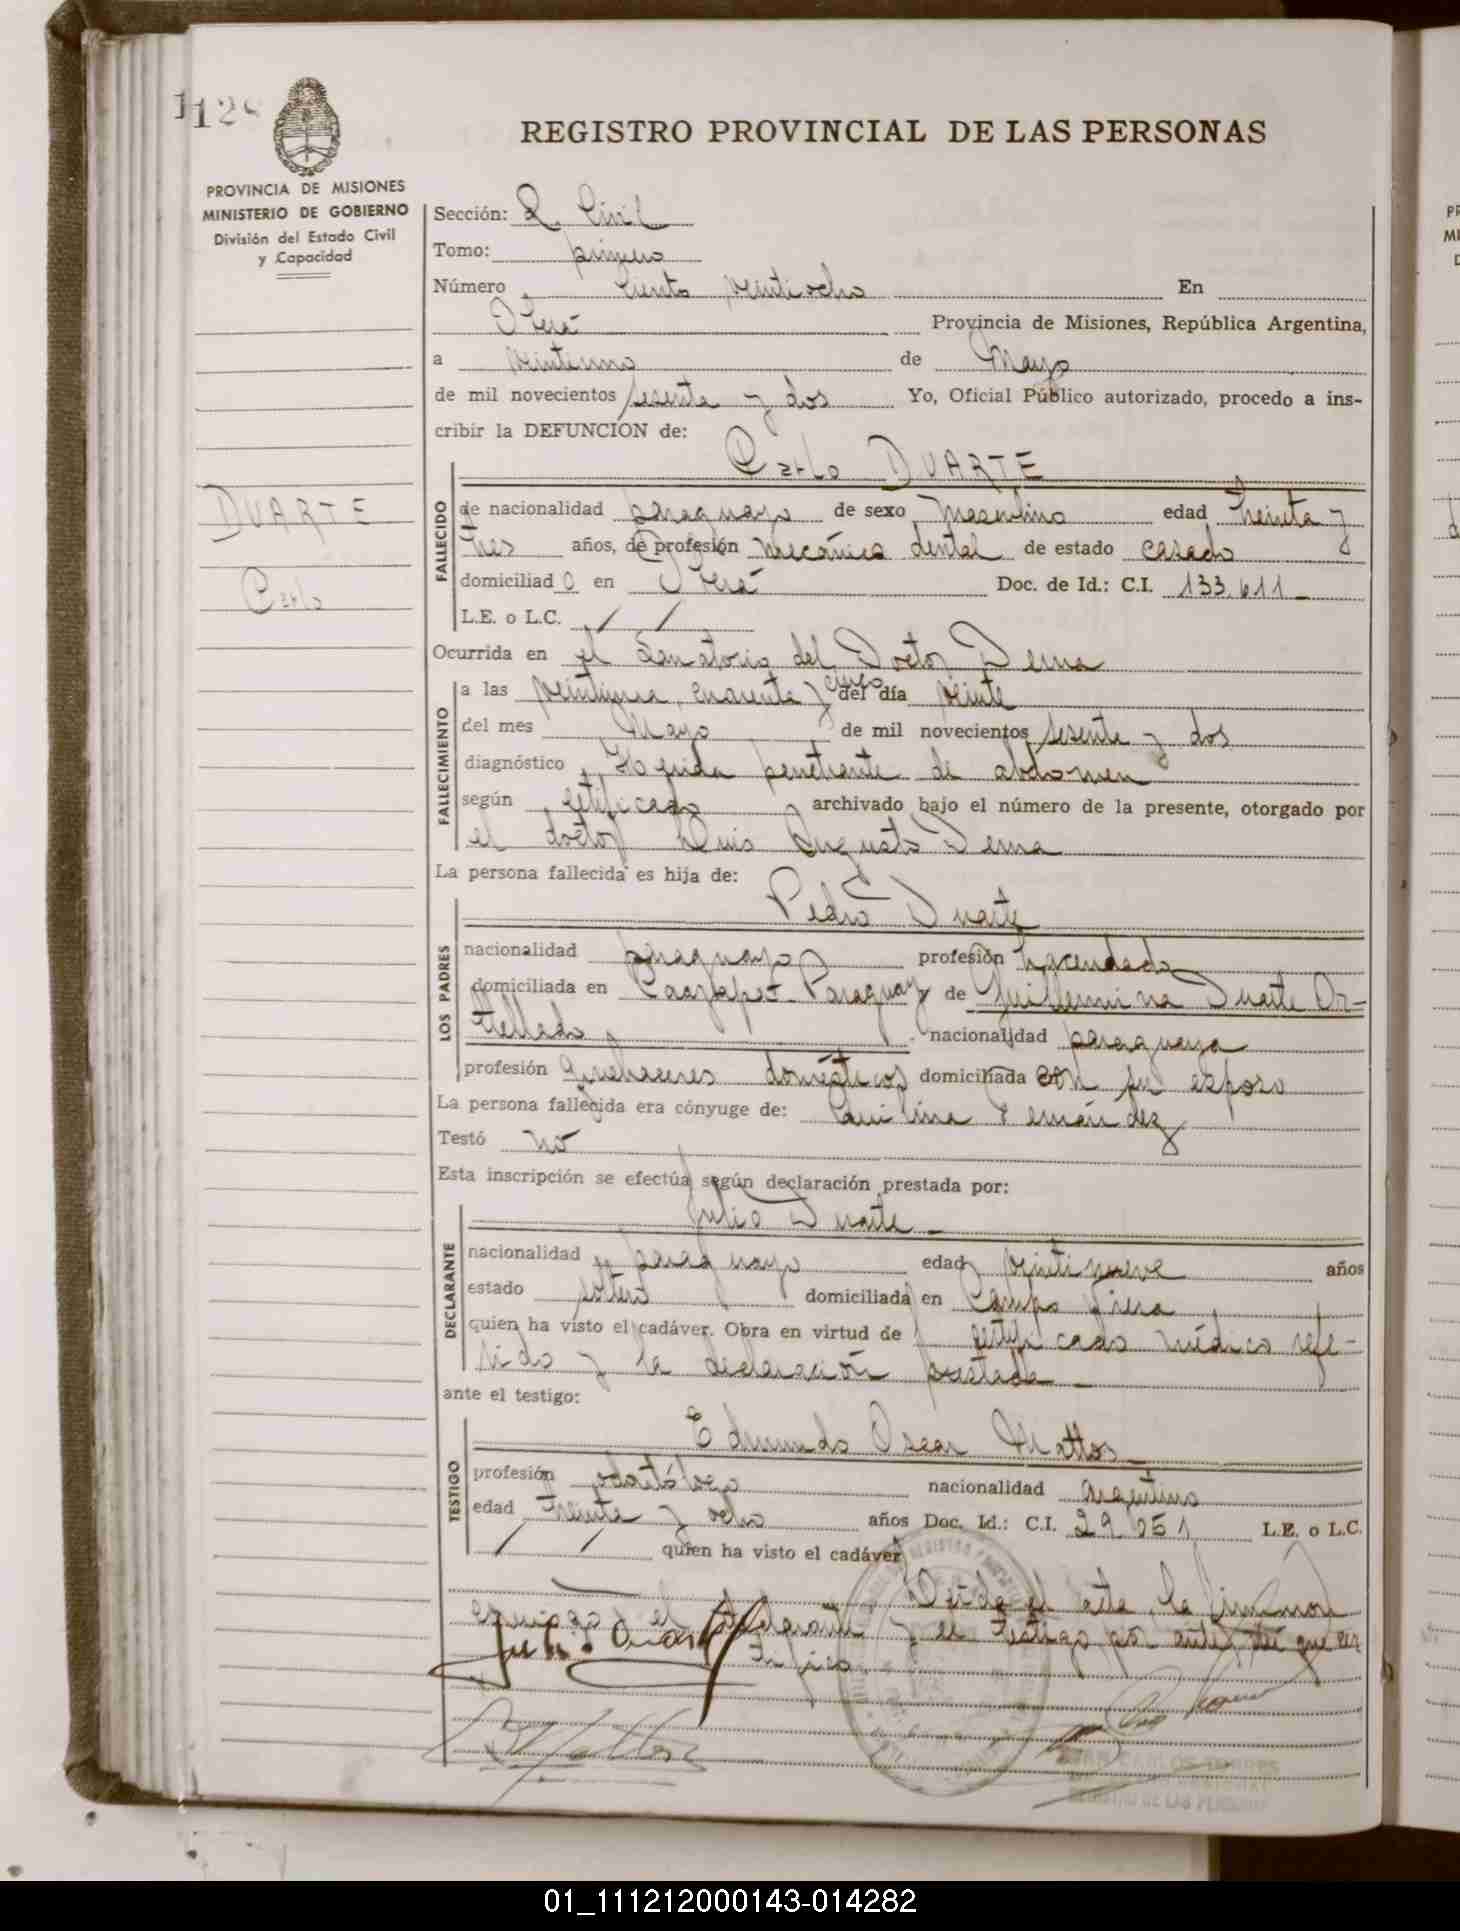 128
REGISTRO PROVINCIAL DE LAS PERSONAS
PROVINCIA DE MISIONES
MINISTERIO DE GOBIERNO
División del Estado Civil
y Capacidad
Sección: R. Civil
Tomo: primero
Número ciento veintiocho En
Oberá Provincia de Misiones, República Argentina,
a veintiuno de Mayo
de mil novecientos sesenta y dos Yo, Oficial Público autorizado, procedo a ins-
cribir la DEFUNCION de:
Carlo DUARTE
DUARTE
Carlo
FALLECIDO
de nacionalidad paraguayo de sexo masculino edad treinta y
tres años, de profesión mecánico dental de estado casado
domiciliado en Oberá Doc. de Id.: C.I. 133.611
L.E. o L.C. / /
Ocurrida en el Sanatorio del Doctor Derna
FALLECIMIENTO
a las veintiuna, cuarenta y cinco del día veinte
del mes Mayo de mil novecientos sesenta y dos
diagnóstico Herida penetrante de abdomen
según certificado archivado bajo el número de la presente, otorgado por
el doctor Luis Augusto Derna
La persona fallecida es hija de:
Pedro Duarte
LOS PADRES
nacionalidad paraguayo profesión hacendado
domiciliada en Caazapá-Paraguay y de Guillermina Duarte Or-
tellado nacionalidad paraguaya
profesión Quehaceres domésticos domiciliada con su esposo
La persona fallecida era cónyuge de: Fernández
Testó no
Esta inscripción se efectúa según declaración prestada por:
Julio Duarte
DECLARANTE
nacionalidad paraguayo edad veintinueve años
estado soltero domiciliada en Campo Viera
quien ha visto el cadáver. Obra en virtud de certificado médico refe-
rido y la declaración prestada
ante el testigo:
Edmundo Oscar Mattos
TESTIGO
profesión odontólogo nacionalidad argentino
edad treinta y ocho años Doc. Id.: C.I. 29.251 L.E. o L.C.
/ / quien ha visto el cadáver
Leída el acta, la firman
conmigo el declarante y el testigo por ante mí que cer
tifico
JUAN CARLOS TORRES
REGISTRO DE LAS PERSONAS
01_111212000143-014282